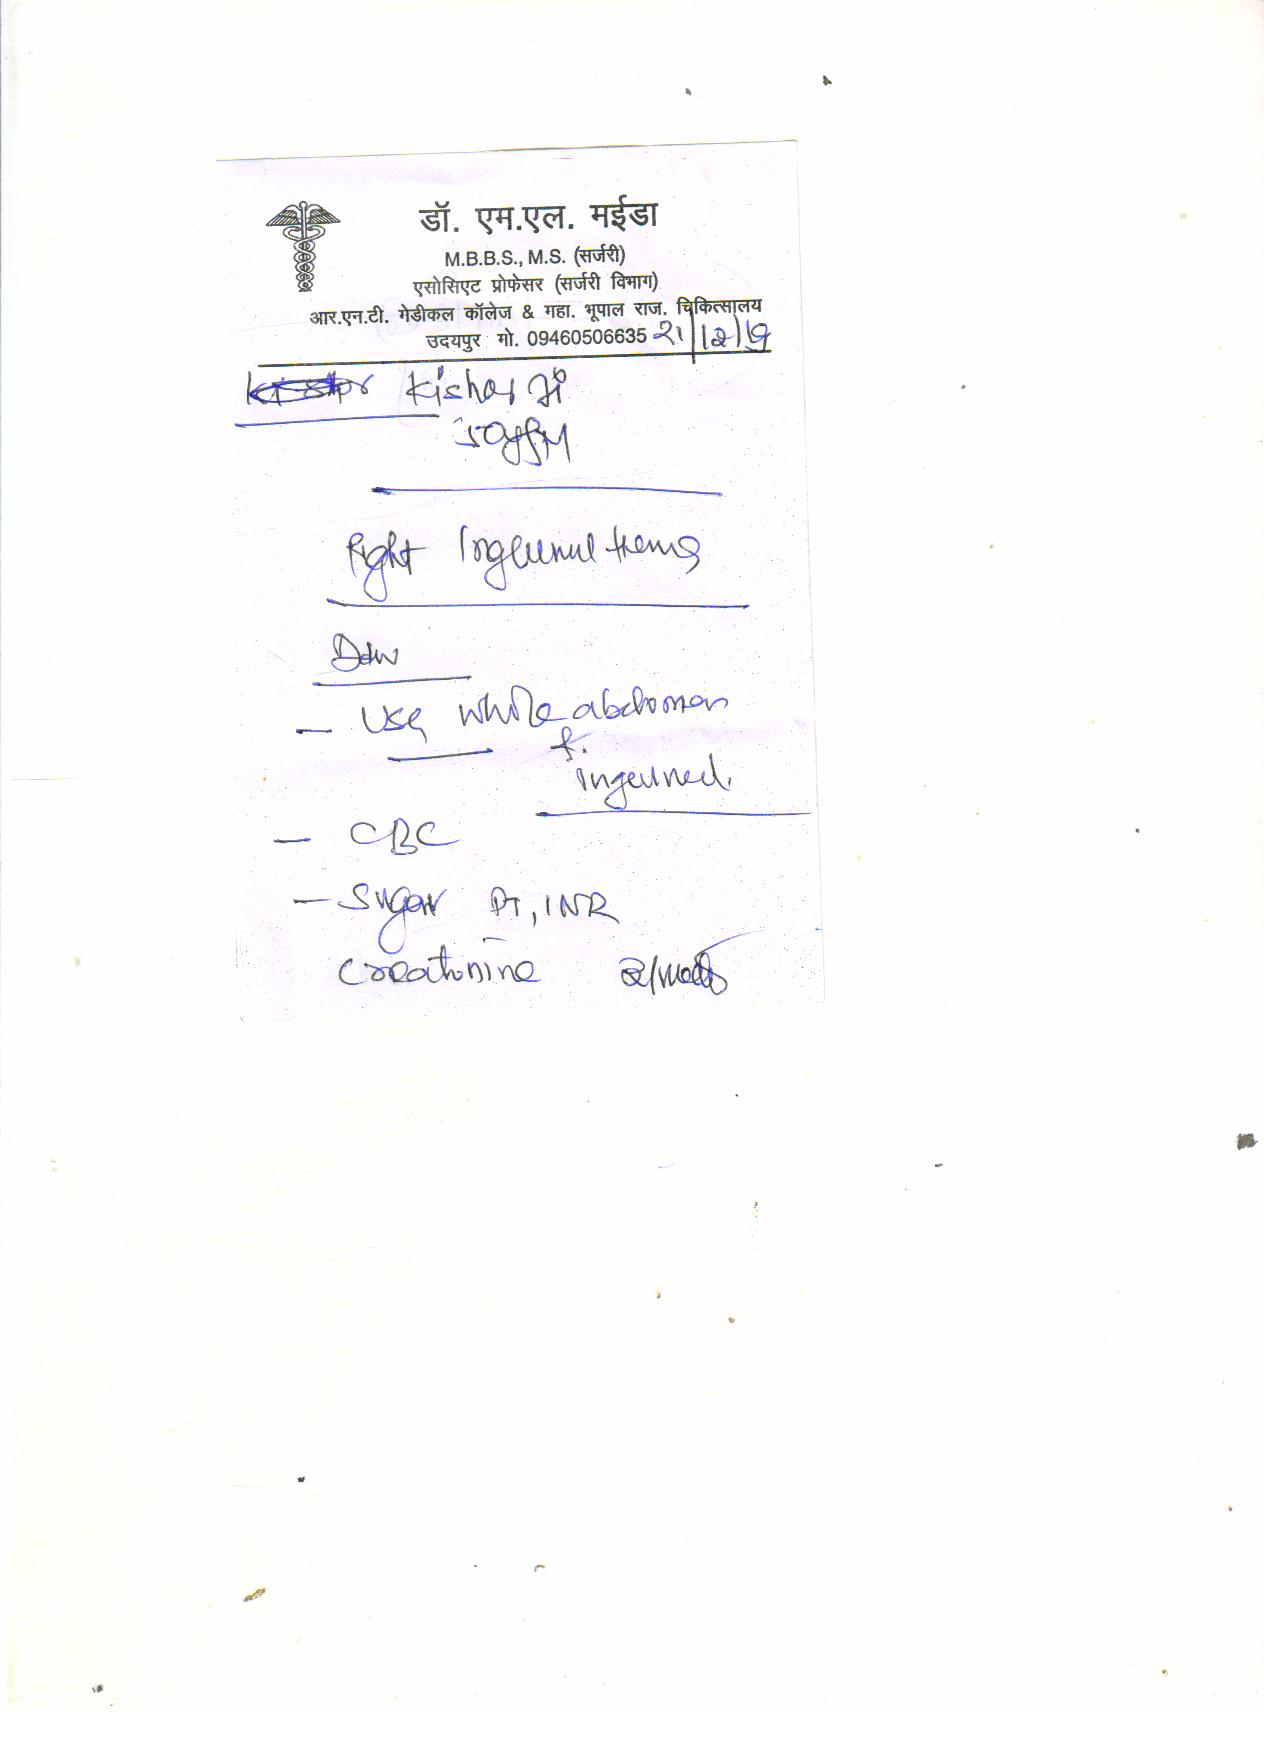 डॉ. एम.एल. मईडा
M.B.B.S., M.S. (सर्जरी)
एसोसिएट प्रोफेसर (सर्जरी विभाग)
आर.एन.टी. मेडीकल कॉलेज & महा. भूपाल राज. चिकित्सालय
उदयपुर मो. 09460506635
Kishor जी
Right Ingeunul Herna
Adv
- USG whole abdomen
&
ingeuned
- CBC
- Sugar PT, INR
Creatinine